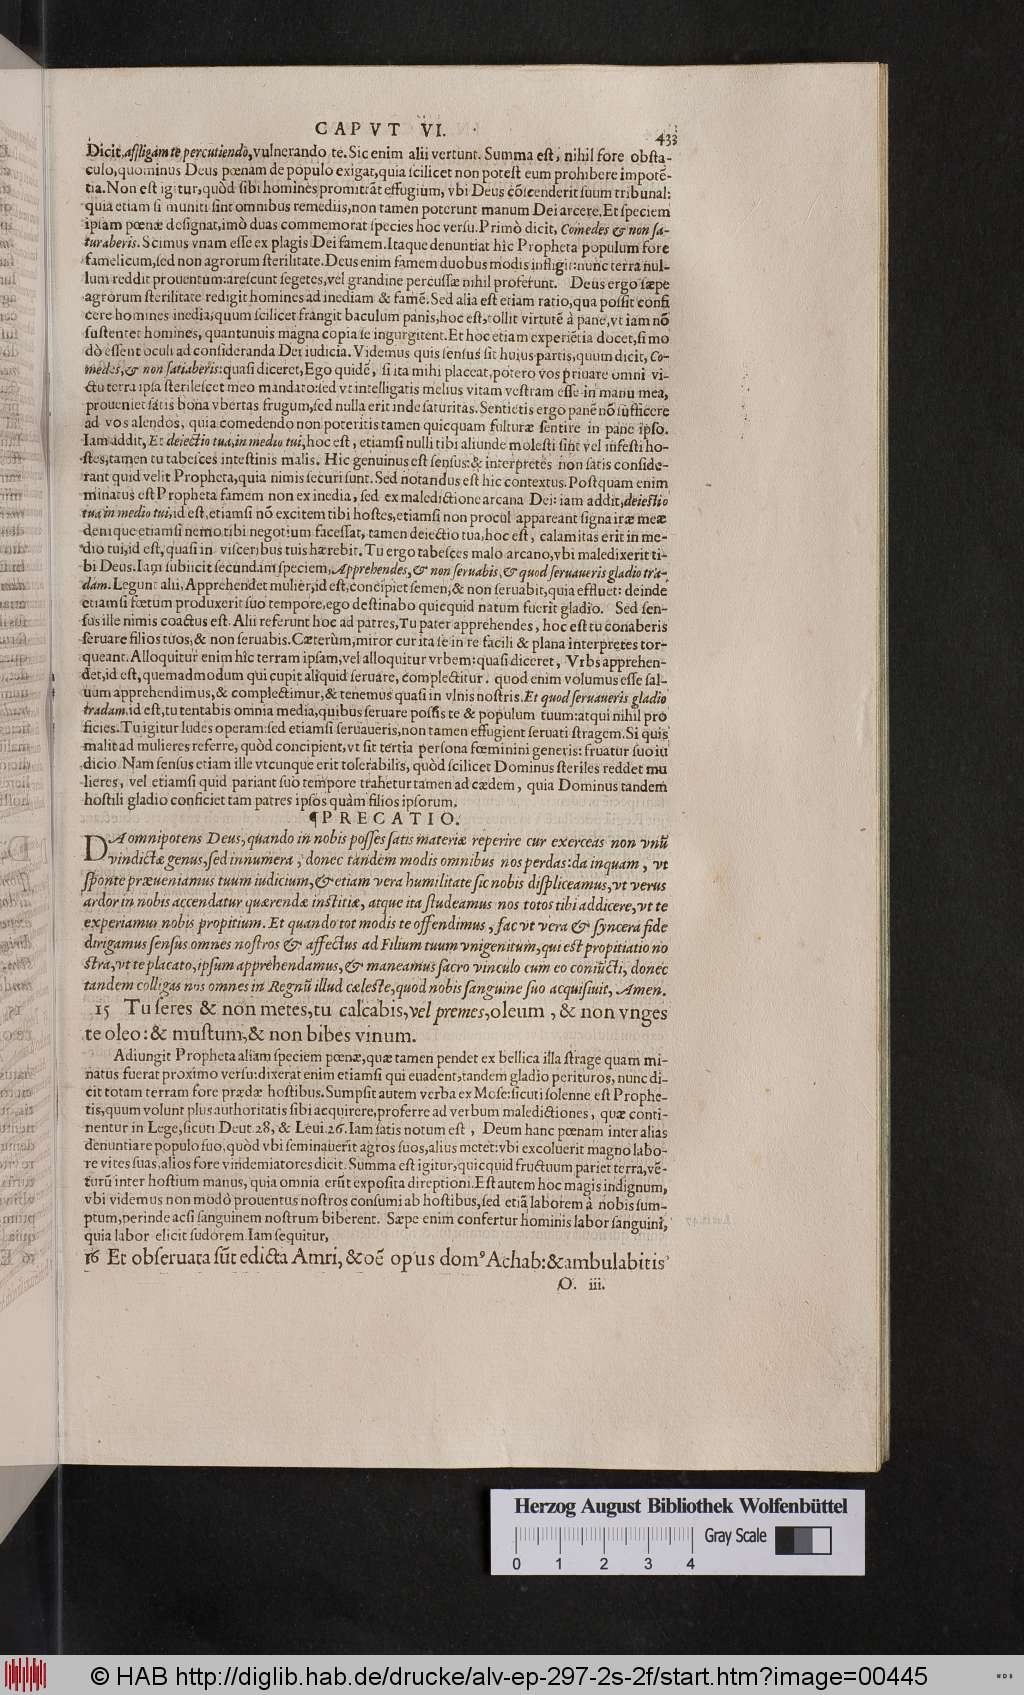 CAPVT VI.
433
Dicit, affligam te percutiendo, vulnerando te. Sic enim alii vertunt. Summa est, nihil fore obsta-
culo, quominus Deus pœnam de populo exigat, quia scilicet non potest eum prohibere impotẽ-
tia. Non est igitur, quòd sibi homines promittãt effugium, vbi Deus cõscenderit suum tribunal:
quia etiam si muniti sint omnibus remediis, non tamen poterunt manum Dei arcere. Et speciem
ipsam pœnæ designat, imò duas commemorat species hoc versu. Primò dicit, Comedes & non sa-
turaberis. Scimus vnam esse ex plagis Dei famem. Itaque denuntiat hîc Propheta populum fore
famelicum, sed non agrorum sterilitate. Deus enim famem duobus modis infligit: nunc terra nul-
lum reddit prouentum: arescunt segetes, vel grandine percussæ nihil proferunt. Deus ergo sæpe
agrorum sterilitate redigit homines ad inediam & famẽ. Sed alia est etiam ratio, qua possit confi
cere homines inedia, quum scilicet frangit baculum panis, hoc est, tollit virtutẽ à pane, vt iam nõ
sustentet homines, quantunuis magna copia se ingurgitent. Et hoc etiam experiẽtia docet, si mo
dò essent oculi ad consideranda Dei iudicia. Videmus quis sensus sit huius partis, quum dicit, Co-
medes, & non satiaberis: quasi diceret, Ego quidẽ, si ita mihi placeat, potero vos priuare omni vi-
ctu terra ipsa sterilescet meo mandato: sed vt intelligatis melius vitam vestram esse in manu mea,
proueniet satis bona vbertas frugum, sed nulla erit inde saturitas. Sentietis ergo panẽ nõ sufficere
ad vos alendos, quia comedendo non poteritis tamen quicquam fulturæ sentire in pane ipso.
Iam addit, Et deiectio tua, in medio tui, hoc est, etiamsi nulli tibi aliunde molesti sint vel infesti ho-
stes, tamen tu tabesces intestinis malis. Hic genuinus est sensus: & interpretes non satis conside-
rant quid velit Propheta, quia nimis securi sunt. Sed notandus est hic contextus. Postquam enim
minatus est Propheta famem non ex inedia, sed ex maledictione arcana Dei: iam addit, deiectio
tua in medio tui, id est, etiamsi nõ excitem tibi hostes, etiamsi non procul appareant signa iræ meæ
denique etiamsi nemo tibi negotium facessat, tamen deiectio tua, hoc est, calamitas erit in me-
dio tui, id est, quasi in visceribus tuis hærebit. Tu ergo tabesces malo arcano, vbi maledixerit ti-
bi Deus. Iam subiicit secundam speciem, Apprehendes, & non seruabis, & quod seruaueris gladio tra-
dam. Legunt alii, Apprehendet mulier, id est, concipiet semen, & non seruabit, quia effluet: deinde
etiamsi fœtum produxerit suo tempore, ego destinabo quicquid natum fuerit gladio. Sed sen-
sus ille nimis coactus est. Alii referunt hoc ad patres, Tu pater apprehendes, hoc est tu conaberis
seruare filios tuos, & non seruabis. Cæterùm, miror cur ita se in re facili & plana interpretes tor-
queant. Alloquitur enim hîc terram ipsam, vel alloquitur vrbem: quasi diceret, Vrbs apprehen-
det, id est, quemadmodum qui cupit aliquid seruare, complectitur. quod enim volumus esse sal-
uum apprehendimus, & complectimur, & tenemus quasi in vlnis nostris. Et quod seruaueris gladio
tradam. id est, tu tentabis omnia media, quibus seruare possis te & populum tuum: atqui nihil pro
ficies. Tu igitur ludes operam: sed etiamsi seruaueris, non tamen effugient seruati stragem. Si quis
malit ad mulieres referre, quòd concipient, vt sit tertia persona fœminini generis: fruatur suo iu
dicio Nam sensus etiam ille vtcunque erit tolerabilis, quòd scilicet Dominus steriles reddet mu
lieres, vel etiamsi quid pariant suo tempore trahetur tamen ad cædem, quia Dominus tandem
hostili gladio conficiet tam patres ipsos quàm filios ipsorum.
¶PRECATIO.
DA omnipotens Deus, quando in nobis posses satis materiæ reperire cur exerceas non vnũ
vindictæ genus, sed innumera, donec tandem modis omnibus nos perdas: da inquam, vt
sponte præueniamus tuum iudicium, & etiam vera humilitate sic nobis displiceamus, vt verus
ardor in nobis accendatur quærendæ institiæ, atque ita studeamus nos totos tibi addicere, vt te
experiamur nobis propitium. Et quando tot modis te offendimus, fac vt vera & syncera fide
dirigamus sensus omnes nostros & affectus ad Filium tuum vnigenitum, qui est propitiatio no
stra, vt te placato, ipsum apprehendamus, & maneamus sacro vinculo cum eo coniũcti, donec
tandem colligas nos omnes in Regnũ illud cæleste, quod nobis sanguine suo acquisiuit, Amen.
15 Tu seres & non metes, tu calcabis, vel premes, oleum, & non vnges
te oleo: & mustum, & non bibes vinum.
Adiungit Propheta aliam speciem pœnæ, quæ tamen pendet ex bellica illa strage quam mi-
natus fuerat proximo versu: dixerat enim etiamsi qui euadent, tandem gladio perituros, nunc di-
cit totam terram fore prædæ hostibus. Sumpsit autem verba ex Mose: sicuti solenne est Prophe-
tis, quum volunt plus authoritatis sibi acquirere, proferre ad verbum maledictiones, quæ conti-
nentur in Lege, sicuti Deut. 28, & Leui. 26. Iam satis notum est, Deum hanc pœnam inter alias
denuntiare populo suo, quòd vbi seminauerit agros suos, alius metet: vbi excoluerit magno labo-
re vites suas, alios fore vindemiatores dicit. Summa est igitur, quicquid fructuum pariet terra, vẽ-
turũ inter hostium manus, quia omnia erũt exposita direptioni. Est autem hoc magis indignum,
vbi videmus non modò prouentus nostros consumi ab hostibus, sed etiã laborem à nobis sum-
ptum, perinde acsi sanguinem nostrum biberent. Sæpe enim confertur hominis labor sanguini,
quia labor elicit sudorem. Iam sequitur,
16 Et obseruata sũt edicta Amri, & oẽ opus domꝰ Achab: & ambulabitis
O. iii.
Herzog August Bibliothek Wolfenbüttel
Gray Scale
0 1 2 3 4
© HAB http://diglib.hab.de/drucke/alv-ep-297-2s-2f/start.htm?image=00445